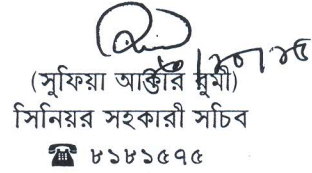 (সুফিয়া আক্তার রুমী)
সিনিয়র সহকারী সচিব
☎ ৮১৮১৫৭৫